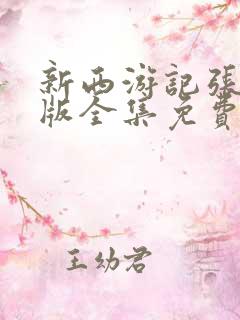 新西游記張
版全集免費
王幼君